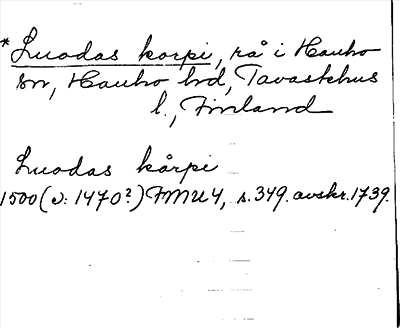 * Luodas korpi, rå i Hauho
sn, Hauho hd, Tavastehus
l., Finland
Luodas kårpi
1500 (v: 1470?) FMU 4, s. 349. avskr. 1739.